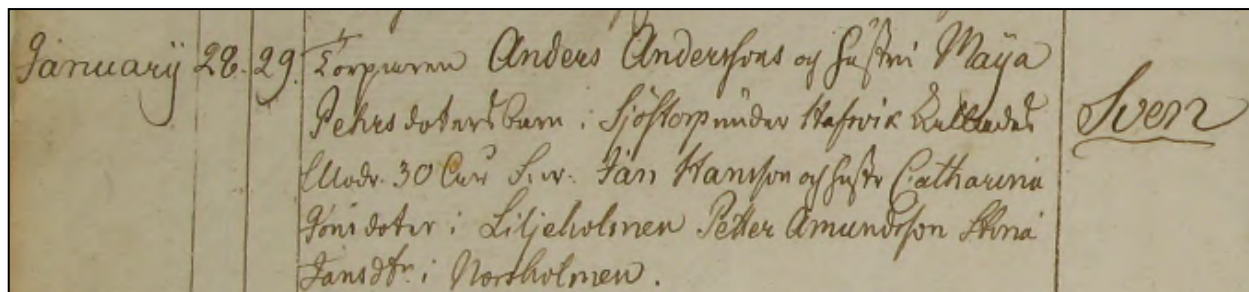 January 28. 29. Torparen Anders Anderssons och hustru Maÿa
Pehrsdoters barn i Sjöstorp under Hafwik kallades
Modr. 30 Jan Hansson och hustr Catharina
doter i Liljeholmen Petter Amundsson Stina
Jansdtr i Norsholmen.
Sven